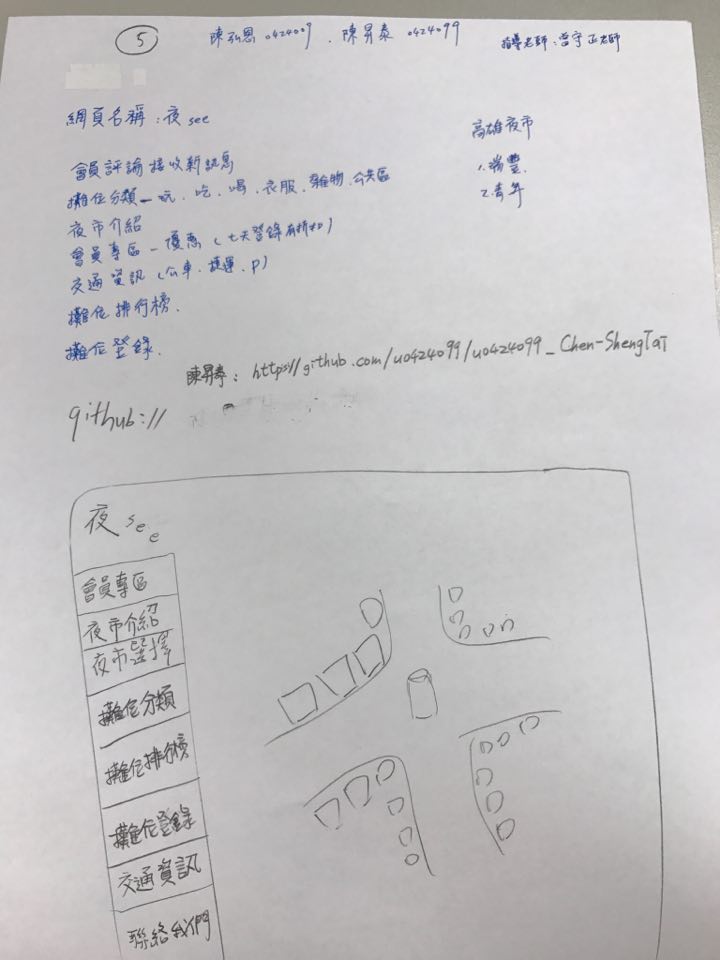 5 陳弘恩 0424009 、陳昇泰 0424099 指導老師:曾守正老師
網頁名稱:夜see
高雄夜市
1.瑞豐
2.青年
會員評論接收新訊息
攤位分類—玩、吃、喝、衣服、雜物、公共區
夜市介紹
會員專區—優惠(七天登錄有折扣)
交通資訊(公車、捷運、P)
攤位排行榜.
攤位登錄.
陳昇泰: https://github.com/u0424099/u0424099_Chen-ShengTai
github://
夜see
會員專區
夜市介紹
夜市選擇
攤位分類
攤位排行榜
攤位登錄
交通資訊
聯絡我們